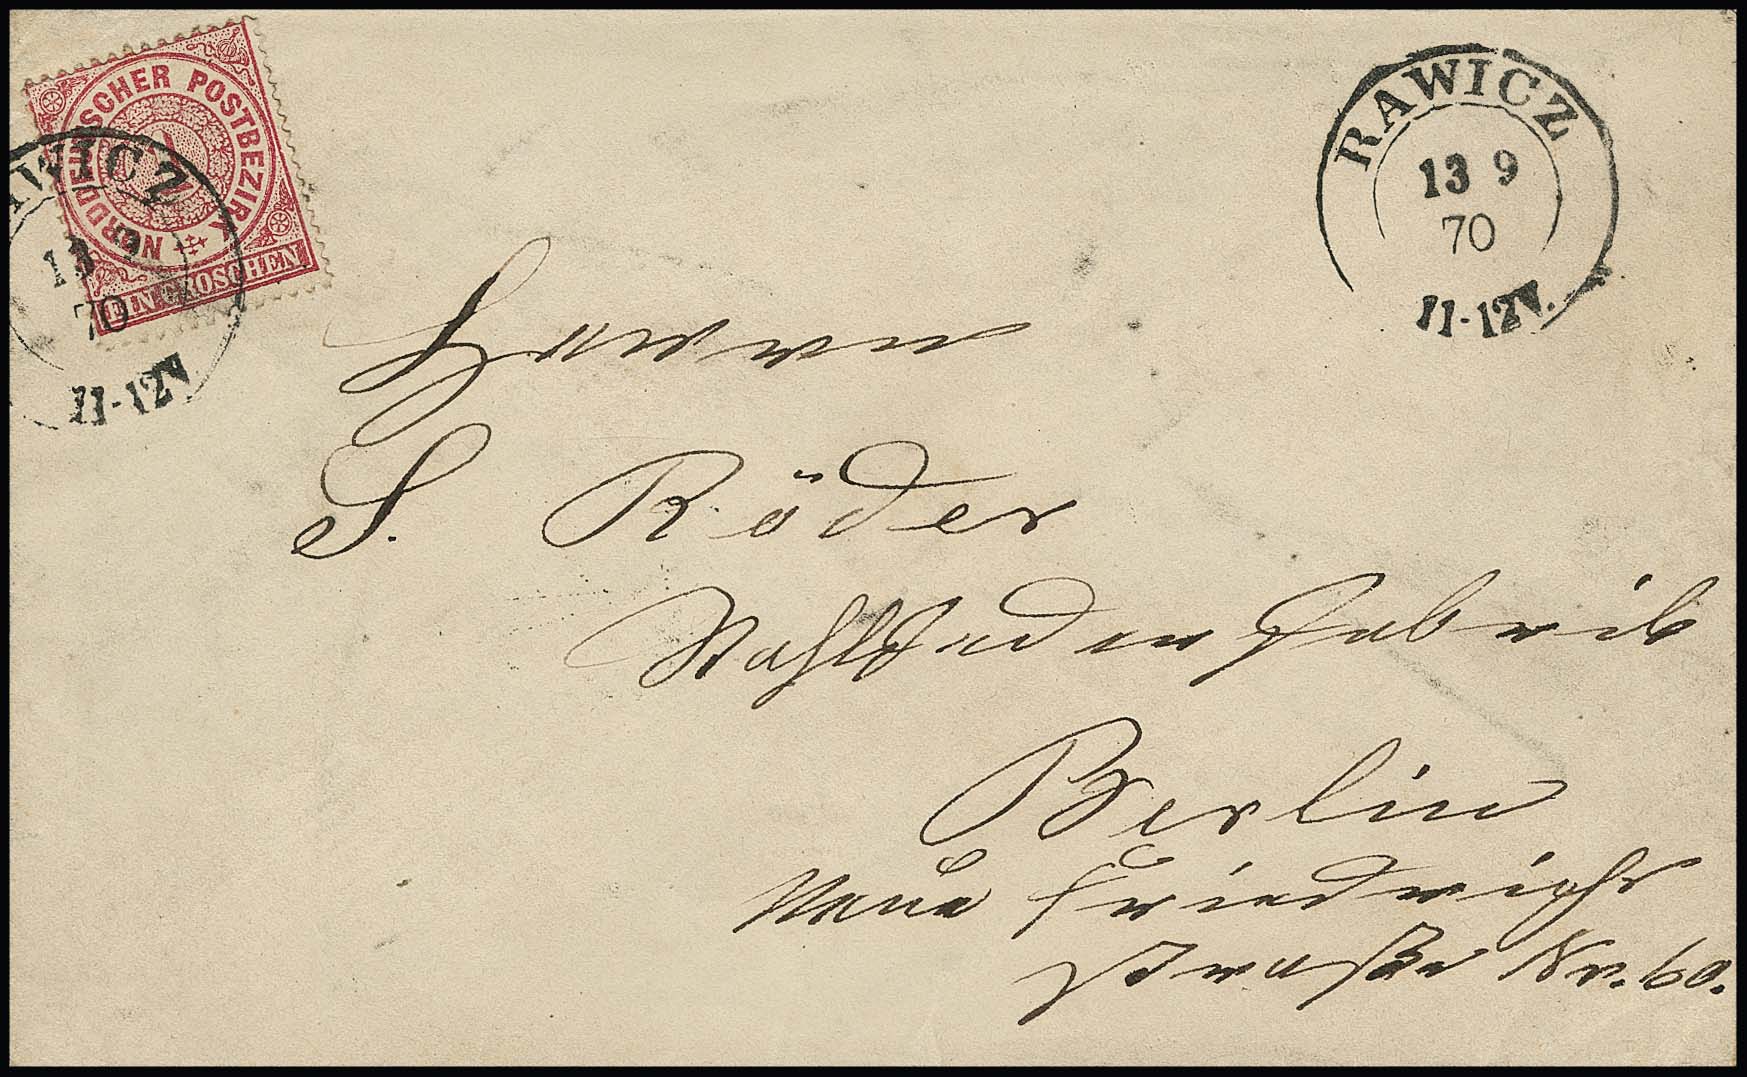 NORDDEUTSCHER POSTBEZIRK
1
EIN GROSCHEN
RAWICZ
13 9
70
11-12V.
RAWICZ
13 9
70
11-12V.
Herrn
S. Röder
Stahlfederfabrik
Berlin
Neue Friedrichs
straße Nr. 60.